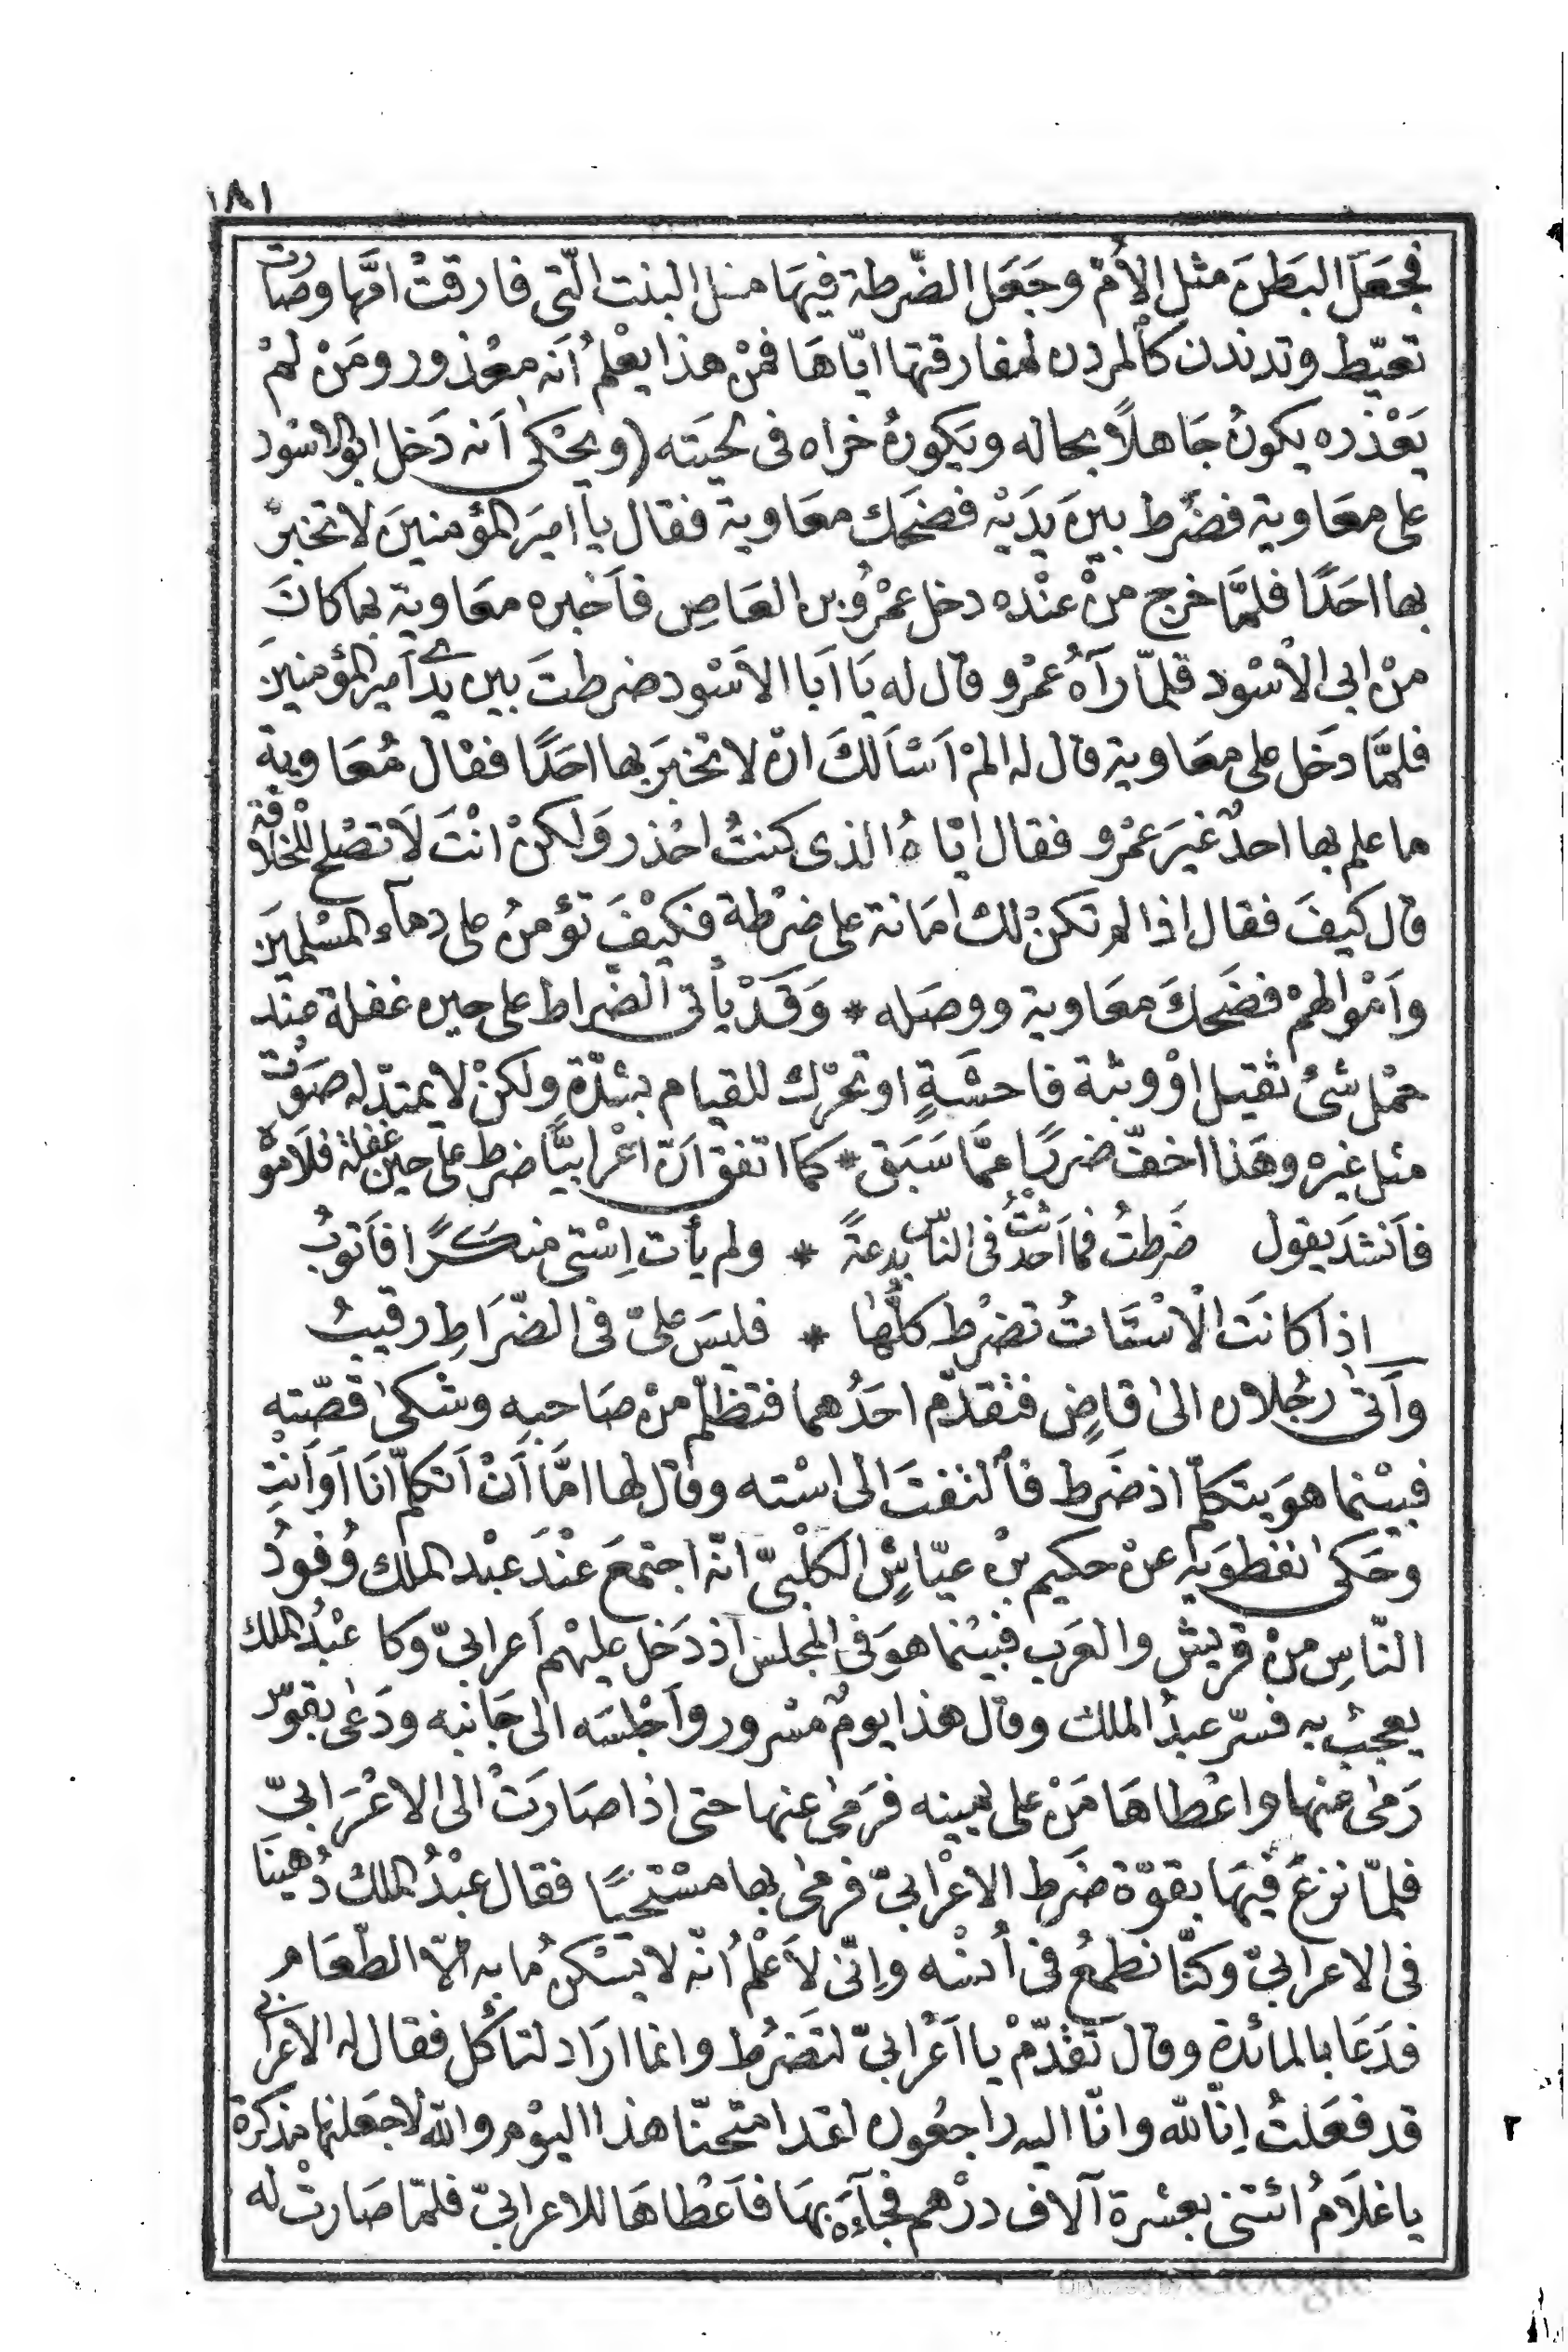 ١٨١
فجعَلَ البَطنَ مثل الأمّ وجَعَل الضّرطة فيهَا مثل البنت الّتى فارقتْ امّها وصَارت
تعيّط وتدندن كألمردن لمفارقتها ايّاهَا فمنْ هذا يعْلمُ أنه معْذور ومَنْ لمْ
يَعْذره يكونُ جَاهلاً بحاله ويَكونُ خراه فى لحيَته (ويحْكىٰ اَنه دَخل ابوالاسْود
على معَاوية فضَرط بينَ يَدَيْه فضحَك معَاوية فقال يا اميَر المؤمنينَ لا تخبرْ
بها احَدًا فلمَّا خرج منْ عنْده دخل عمْرُو بن العَاصِ فاَخبره معَاوية بما كانَ
منْ ابى الاسْود فلمّا رآهُ عمْرو قال له يَا اَبا الاَسْود ضرطتَ بين يدىْ اَمير المؤمنينَ
فلمَّا دخَل على معَاوية قال له المْ اَسْاَلكَ انْ لا تخبرَ بها احَدًا فقال مُعَاوية
ما علم بها احدٌ غيرَ عمْرو فقال ايّاهُ الذى كنتُ احْذر وَلكنْ انْتَ لَا تصْلح للخلافة
قال كيفَ فقال اذا لم تكنْ لك امَانة على ضرْطة فكيْفَ تؤمنُ على دمآء المسْلمينَ
واَمْوالهمْ فضَحكَ معَاوية ووصَله * وَقَدْ يأتى الضّراط على حين غفلة عنْد
حمْل شئ ثقيل اوْ وثبة فاحشَةٍ او تحرّك للقيام بشدّةٍ ولكنْ لا يمتدّ له صَوْت
مثل غيره وهَذا اخفّ ضررًا ممَّا سَبَق * كمَا اتفق اَنّ اعْرابيًّا ضرط على حين غفلة فلَامُوْه
فاَنشدَ يقول ضَرطتُ فما اَحْدثتُ فى النّاس بدعةً * ولم يأت اِسْتى منكَرًا فاَتوبُ
اذا كانَت الاسْتَاتُ تضْرط كلّهَا * فليسَ علىّ فى الضّرَاطِ رقيبُ
وأتىٰ رجُلان الىٰ قاضٍ فتقدّم احَدُهما فتظلّم منْ صَاحبه وشكىٰ قصّته
فبيْنما هوَ يتكلّم اذ ضَرط فألتفتَ الى اسْته وقال لها امَّا اَنْ اَتكلّم اَنَا اَوْ اَنتِ
وحَكىٰ نفطوَيه عنْ حكيم بنْ عيّاشٍ الكلْبىّ انّه اجتمعَ عنْدَ عبْد الملك وُفودُ
النّاسِ منْ قريش والعَرب فبينما هوَ فى المجلس اذ دَخل عليْهم اَعرابىّ وكا عبْدُ الملك
يعجبُ به فسرّ عبدُ الملك وقال هذا يومٌ مسْرور واَجْلسَه الى جَانبه ودَعىٰ بقوّس
رَمىٰ عنها واعْطاهَا مَنْ على يمينه فرَمىٰ عنها حتى اذا صَارَتْ الى الاعْرَابىّ
فلمّا نزعَ فيهَا بقوّة ضَرط الاعْرابىّ فرمىٰ بها مسْتحيًا فقال عبْدُ الملك دُهينَا
فى الاعرابىّ وكنّا نطمعُ فى اُنسْه واِنّى لاَعْلمُ انّه لا يسْكنُ ما به الّا الطّعَام
فدَعَا بالمائدة وقال تَقدّمْ يا اَعْرابىّ لتضَرُط وانما ارَاد لتأكل فقال له الاعرَابى
قد فعَلتُ اِنّا لله وانّا اليه راجعُون لقد امتحنّا هذا اليوْم والله لاجعَلنها مذكرة
يا غلَامُ ائتنى بعشرة آلاف درْهم فجآءَ بهَا فاَعْطاهَا للاعرابىّ فلمّا صَارتْ له
٢